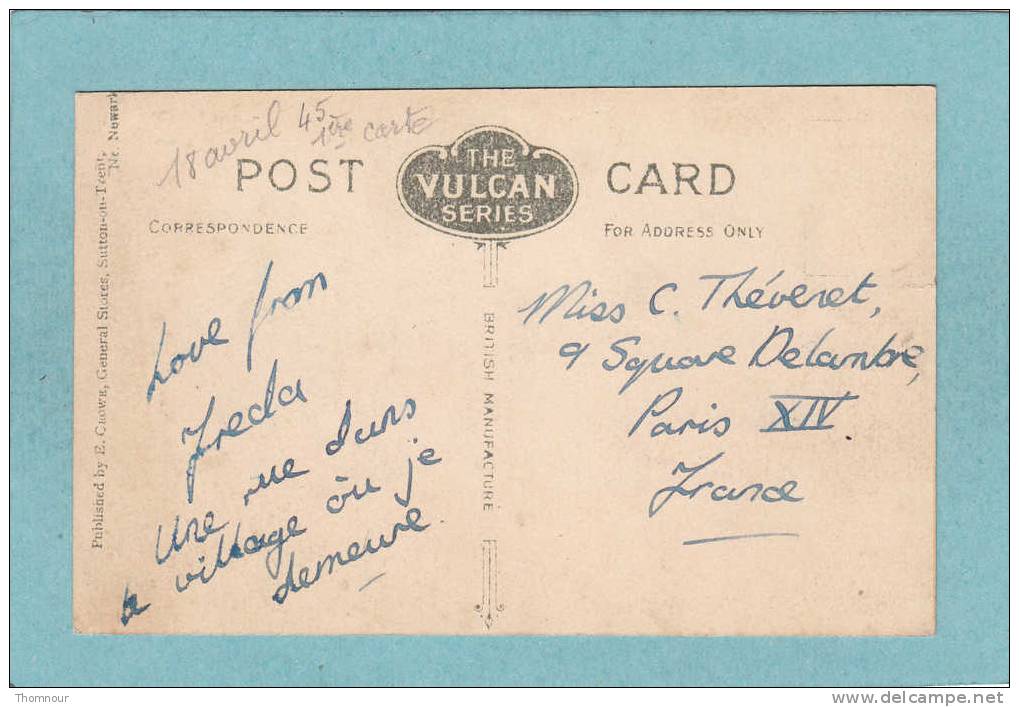 18 avril 45
1ère carte
POST CARD
THE
VULCAN
SERIES
CORRESPONDENCE
FOR ADDRESS ONLY
Published by E. CROWE, General Stores, Sutton-on-Trent,
Nr. Newark
BRITISH MANUFACTURE
Love from
Freda
Une rue dans
le village òu je
demeure.
Miss C. Théveret,
9 Square Delambre,
Paris XIV
France
Thomnour
delcampe.net